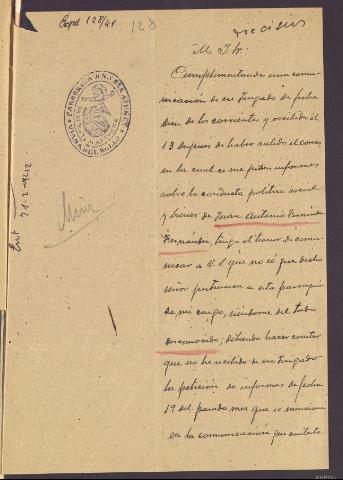 Expd 128/41
128
dieciseis
M. I. Sr:
Cumplimentando una comu-
nicación de ese Juzgado de fecha
diez de los corrientes y recibida el
13 despues de haber salido el correo
en la cual se me piden informes
sobre la conducta politico social
y bienes de Juan Antonio Fernández
Fernández, tengo el honor de comu-
nicar a V.S. que no sé que dicho
señor pertenezca a esta parroquia
de mi cargo, siendome del todo
desconocido; debiendo hacer constar
que no he recibido de ese Juzgado
la petición de informes de fecha
19 del pasado mes que se menciona
en la comunicación que contesto.
PARROQUIA
Ent